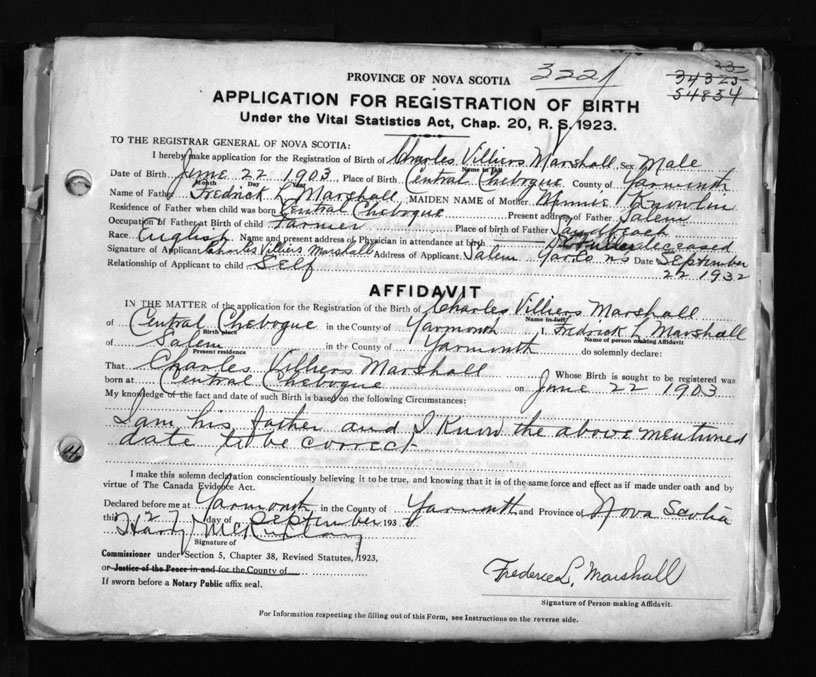 PROVINCE OF NOVA SCOTIA 3221 34323 54834
APPLICATION FOR REGISTRATION OF BIRTH
Under the Vital Statistics Act, Chap. 20, R. S. 1923.
TO THE REGISTRAR GENERAL OF NOVA SCOTIA:
I hereby make application for the Registration of Birth of Charles Villiers Marshall Sex Male
Name in full
Date of Birth June 22 1903 Place of Birth Central Chebogue County of Yarmouth
Month Day
Name of Father Fredrick L Marshall MAIDEN NAME of Mother Minnie
Residence of Father when child was born Central Chebogue Present address of Father Salem
Occupation of Father at Birth of child Farmer Place of birth of Father Sand Beach
Race English Name and present address of Physician in attendance at birth deceased
Signature of Applicant Charles Villiers Marshall Address of Applicant Salem Yar Co NS Date September
Relationship of Applicant to child Self 22 1932
AFFIDAVIT
IN THE MATTER of the application for the Registration of the Birth of Charles Villiers Marshall
Name in full
of Central Chebogue in the County of Yarmouth I, Fredrick L Marshall
Birth place Name of person making Affidavit
of Salem in the County of Yarmouth do solemnly declare:
Present residence
That Charles Villiers Marshall Whose Birth is sought to be registered was
born at Central Chebogue on June 22 1903
My knowledge of the fact and date of such Birth is based on the following Circumstances:
I am his father and I Know the above mentioned
date to be correct
I make this solemn declaration conscientiously believing it to be true, and knowing that it is of the same force and effect as if made under oath and by
virtue of The Canada Evidence Act.
Declared before me at Yarmouth in the County of Yarmouth and Province of Nova Scotia
this day of September 193
Signature of
Commissioner under Section 5, Chapter 38, Revised Statutes, 1923,
or Justice of the Peace in and for the County of
If sworn before a Notary Public affix seal.
Frederic L. Marshall
Signature of Person making Affidavit.
For Information respecting the filling out of this Form, see Instructions on the reverse side.